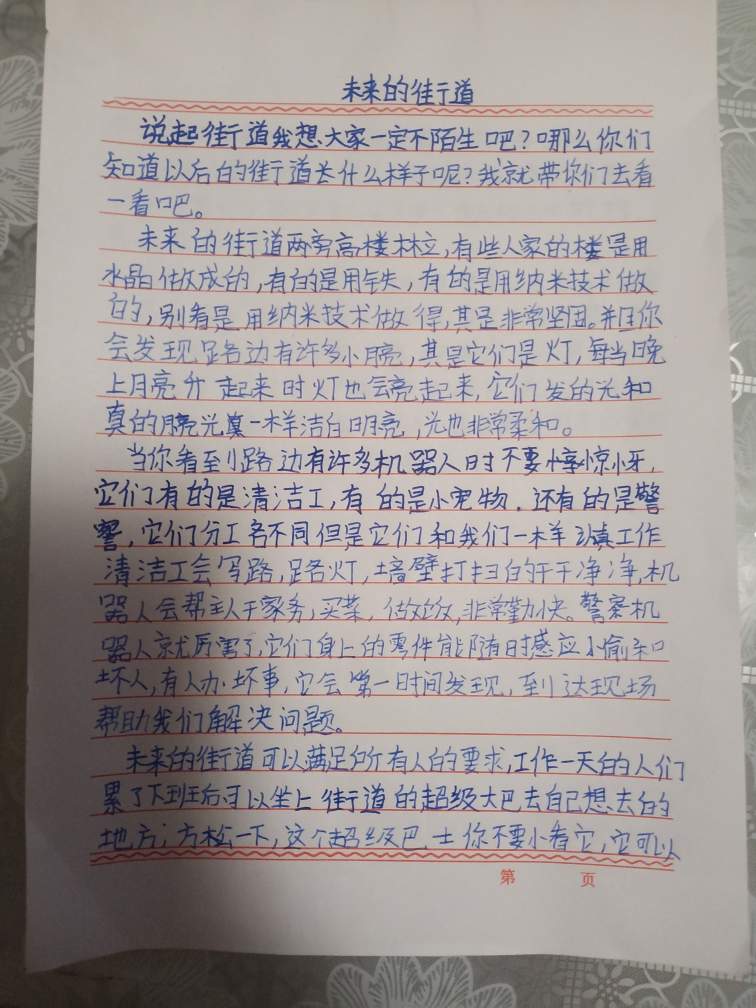 未来的街道
说起街道我想大家一定不陌生吧？哪么你们
知道以后的街道长什么样子呢？我就带你们去看
一看吧。
未来的街道两旁高楼林立，有些人家的楼是用
水晶做成的，有的是用铁，有的是用纳米技术做
的，别看是用纳米技术做得，其是非常坚固。并且你
会发现路边有许多小月亮，其是它们是灯，每当晚
上月亮升起来时灯也会亮起来，它们发的光和
真的月亮光一样洁白明亮，光也非常柔和。
当你看到路边有许多机器人时不要惊讶，
它们有的是清洁工，有的是小宠物，还有的是警
察，它们分工各不同但是它们和我们一样认真工作
清洁工会写路，路灯，墙壁打扫的干干净净，机
器人会帮主人干家务，买菜，做饭，非常勤快。警察机
器人就厉害了，它们身上的零件能随时感应小偷和
坏人，有人办坏事，它会第一时间发现，到达现场
帮助我们解决问题。
未来的街道可以满足所有人的要求，工作一天的人们
累了下班后可以坐上街道的超级大巴去自己想去的
地方；方松一下，这个超级巴士你不要小看它，它可以
第 页